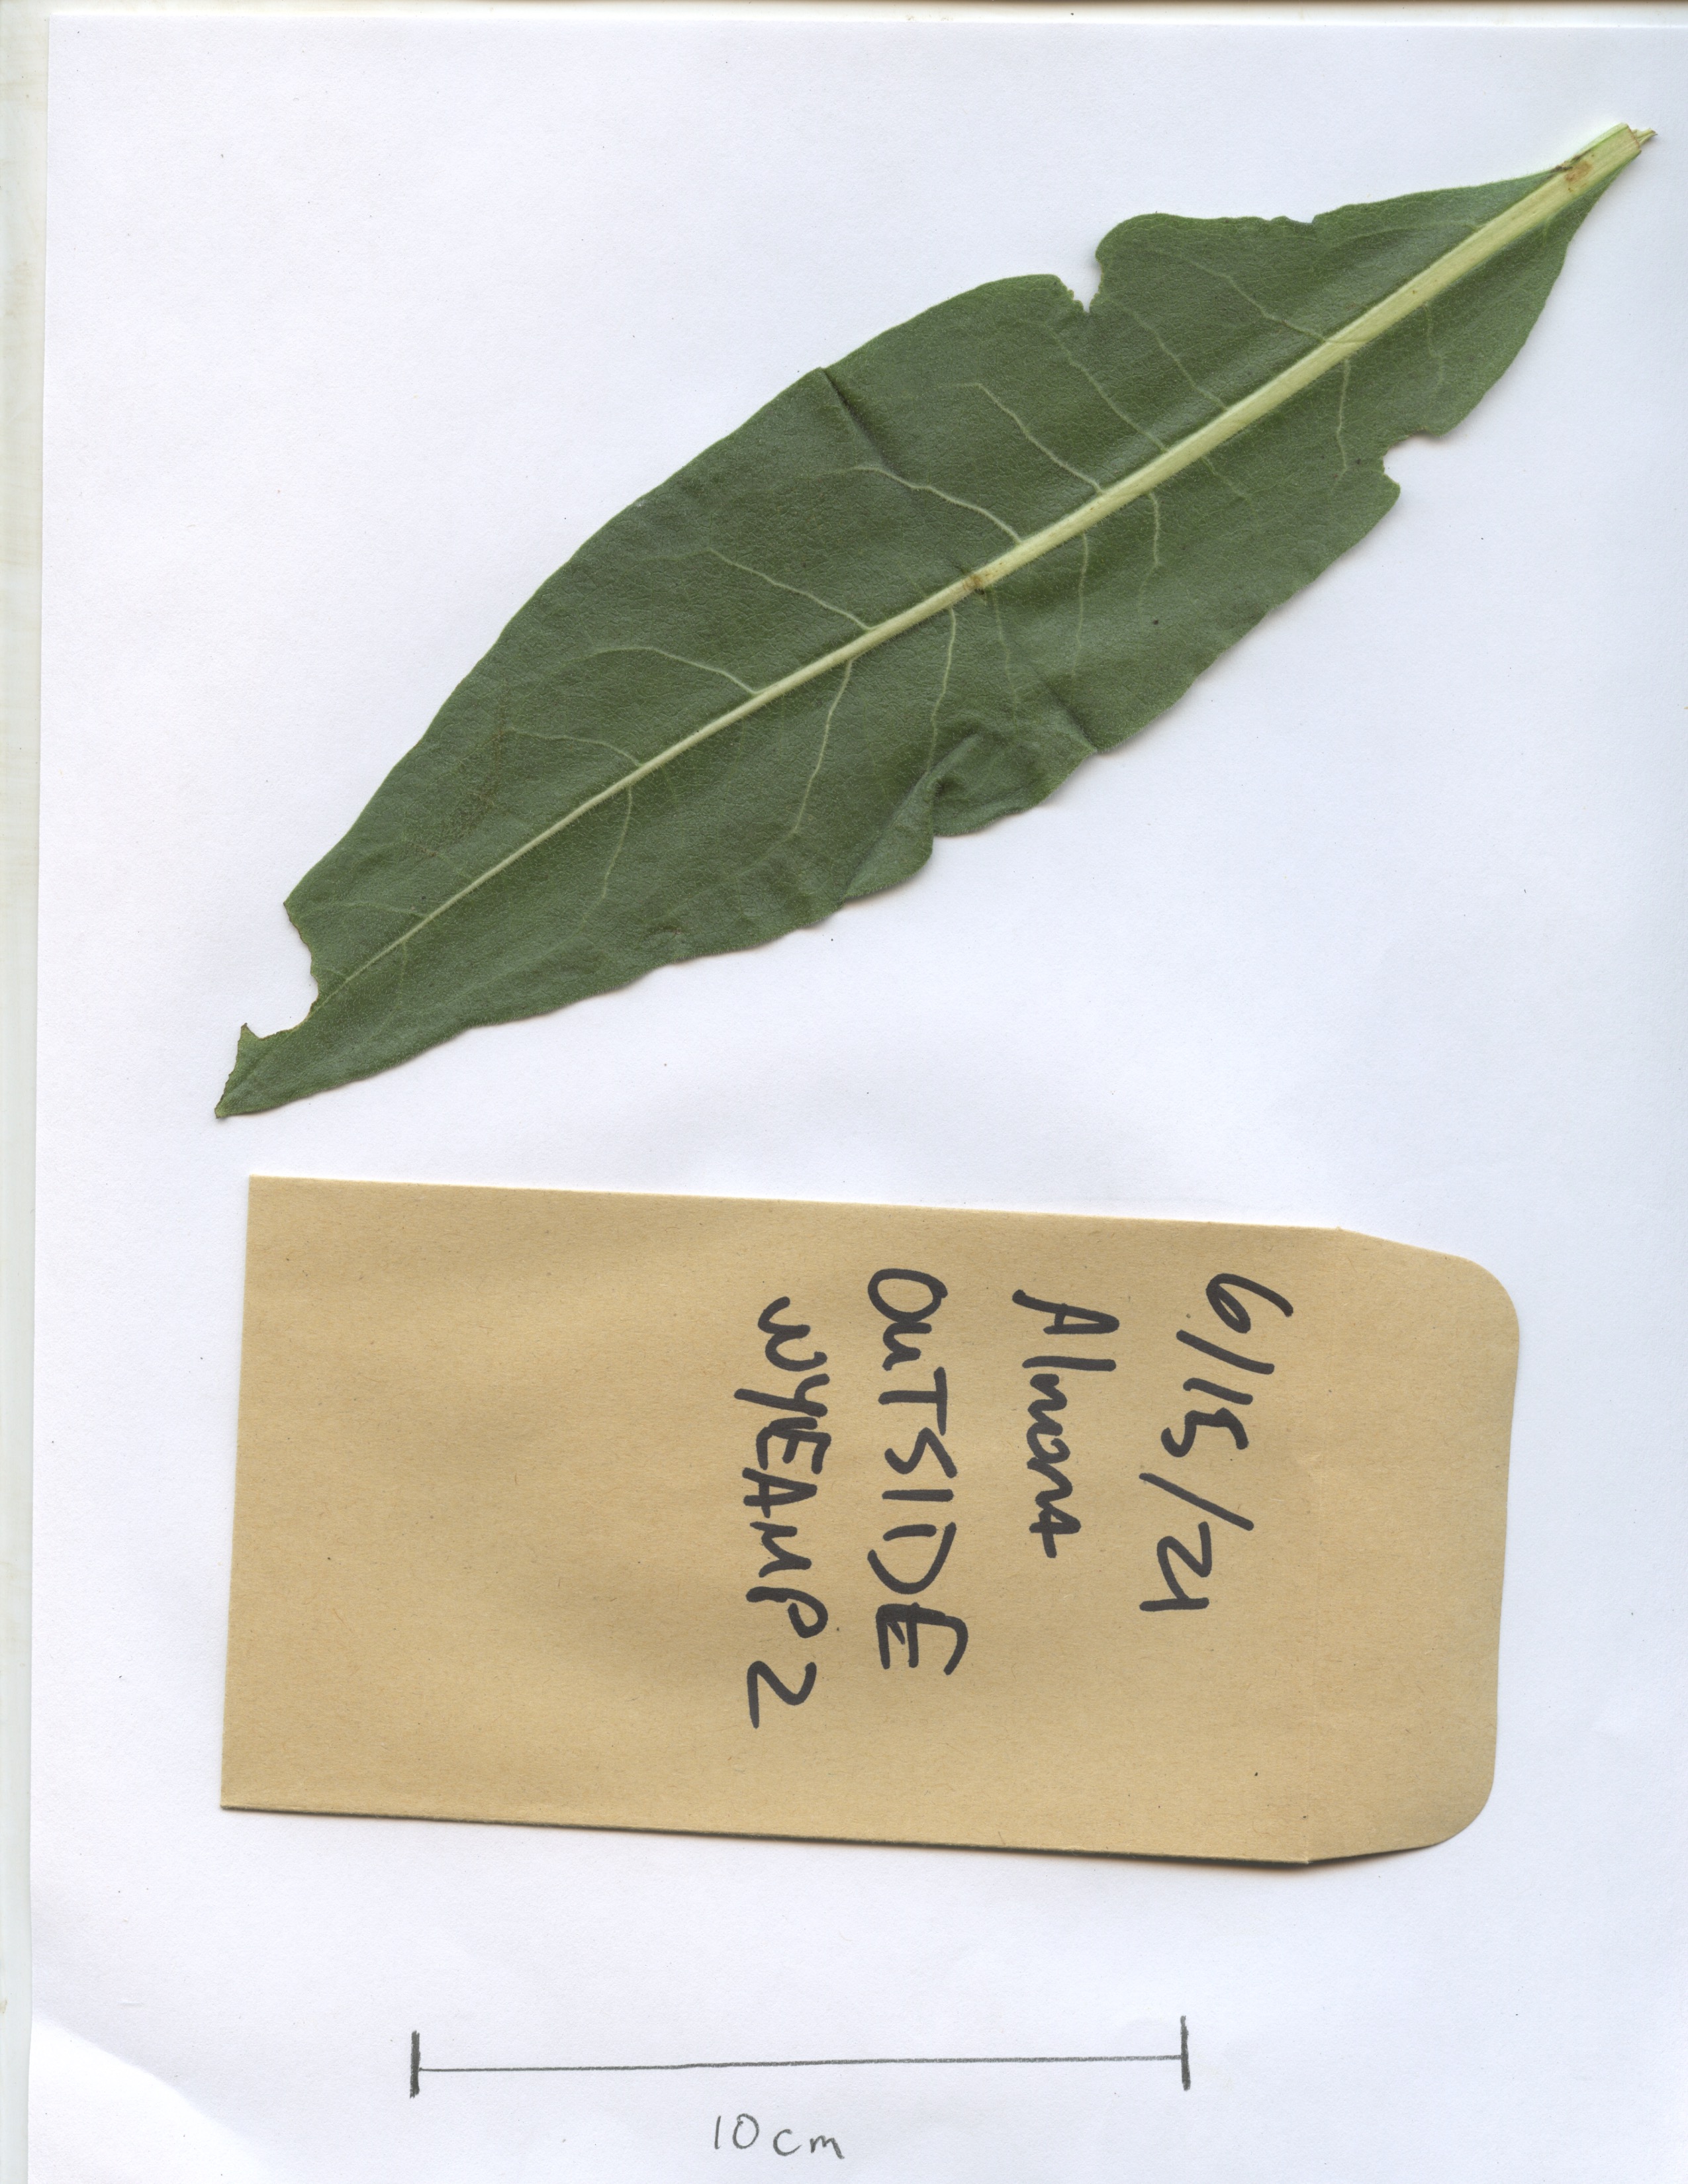 6/15/21
Almont
OUTSIDE
WYEAMP2
10cm